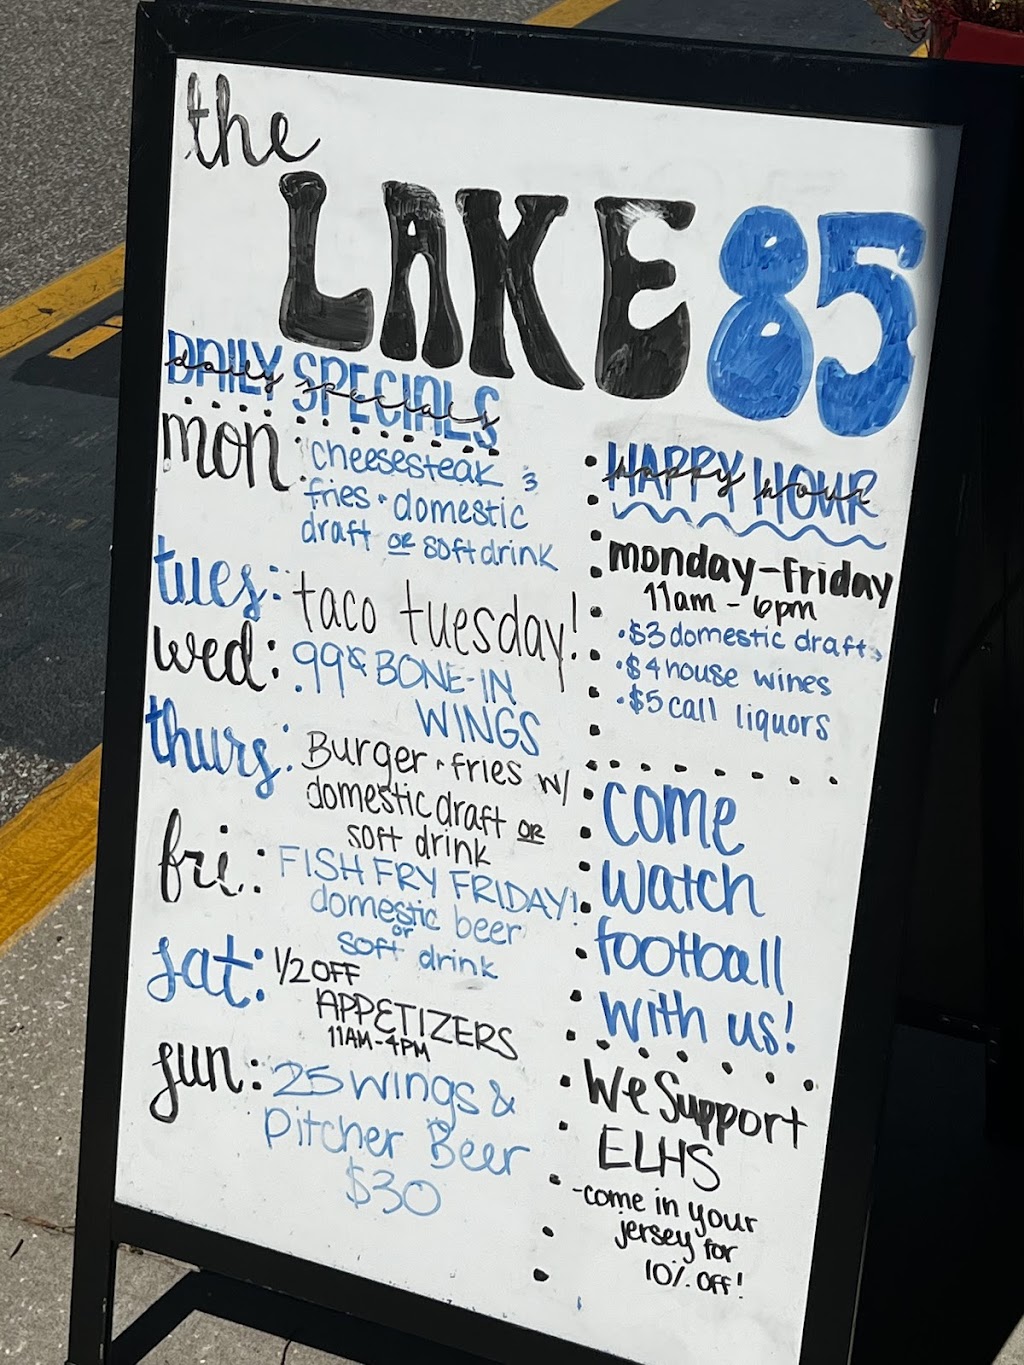 the
LAKE 85
DAILY SPECIALS
daily specials
mon: cheesesteak &
fries • domestic
draft or soft drink
tues: taco tuesday!
wed: .99¢ BONE-IN
WINGS
thurs: Burger • fries w/
domestic draft OR
soft drink
fri: FISH FRY FRIDAY!
domestic beer
or
soft drink
sat: 1/2 OFF
APPETIZERS
11AM-4PM
sun: 25 wings &
Pitcher Beer
$30
HAPPY HOUR
happy hour
monday-Friday
11am - 6pm
• $3 domestic drafts
• $4 house wines
• $5 call liquors
come
watch
football
with us!
We Support
ELHS
-come in your
jersey for
10% OFF!